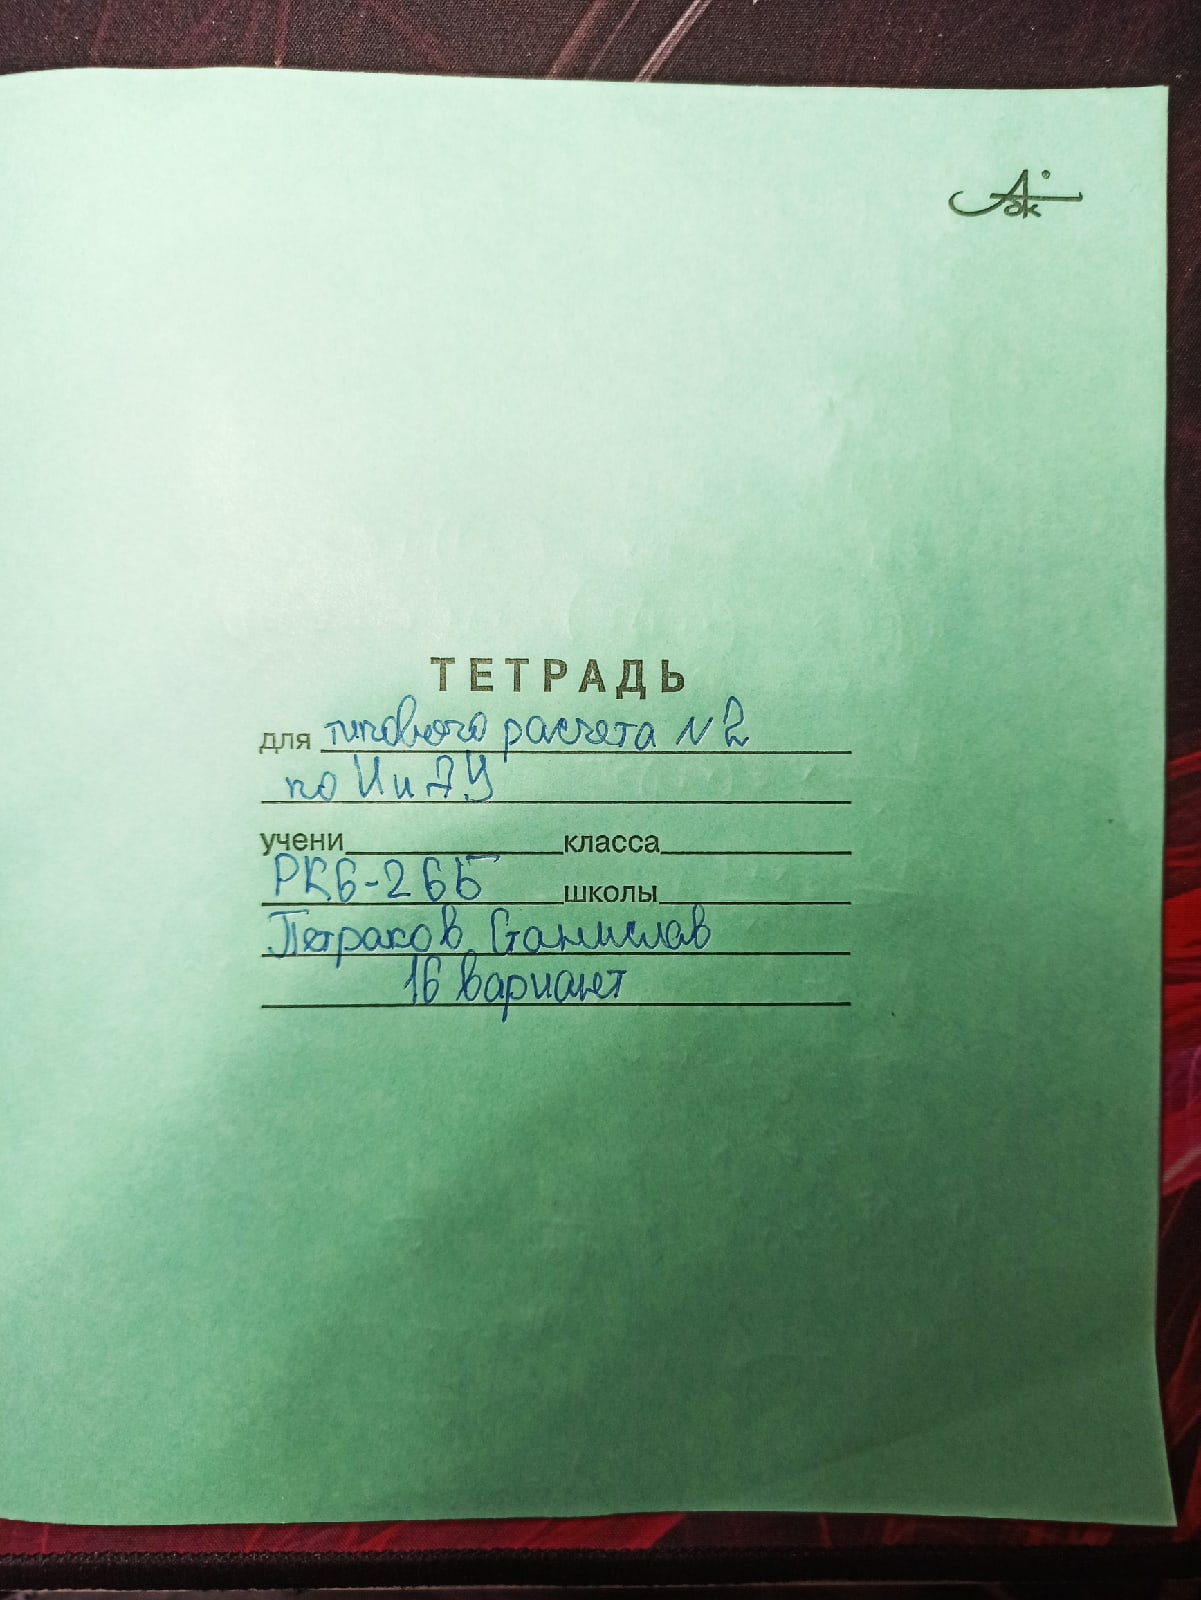 Абк
ТЕТРАДЬ
для типового расчета N2
по ИиДУ
учени класса
РК6-26Б школы
Петраков Станислав
16 вариант